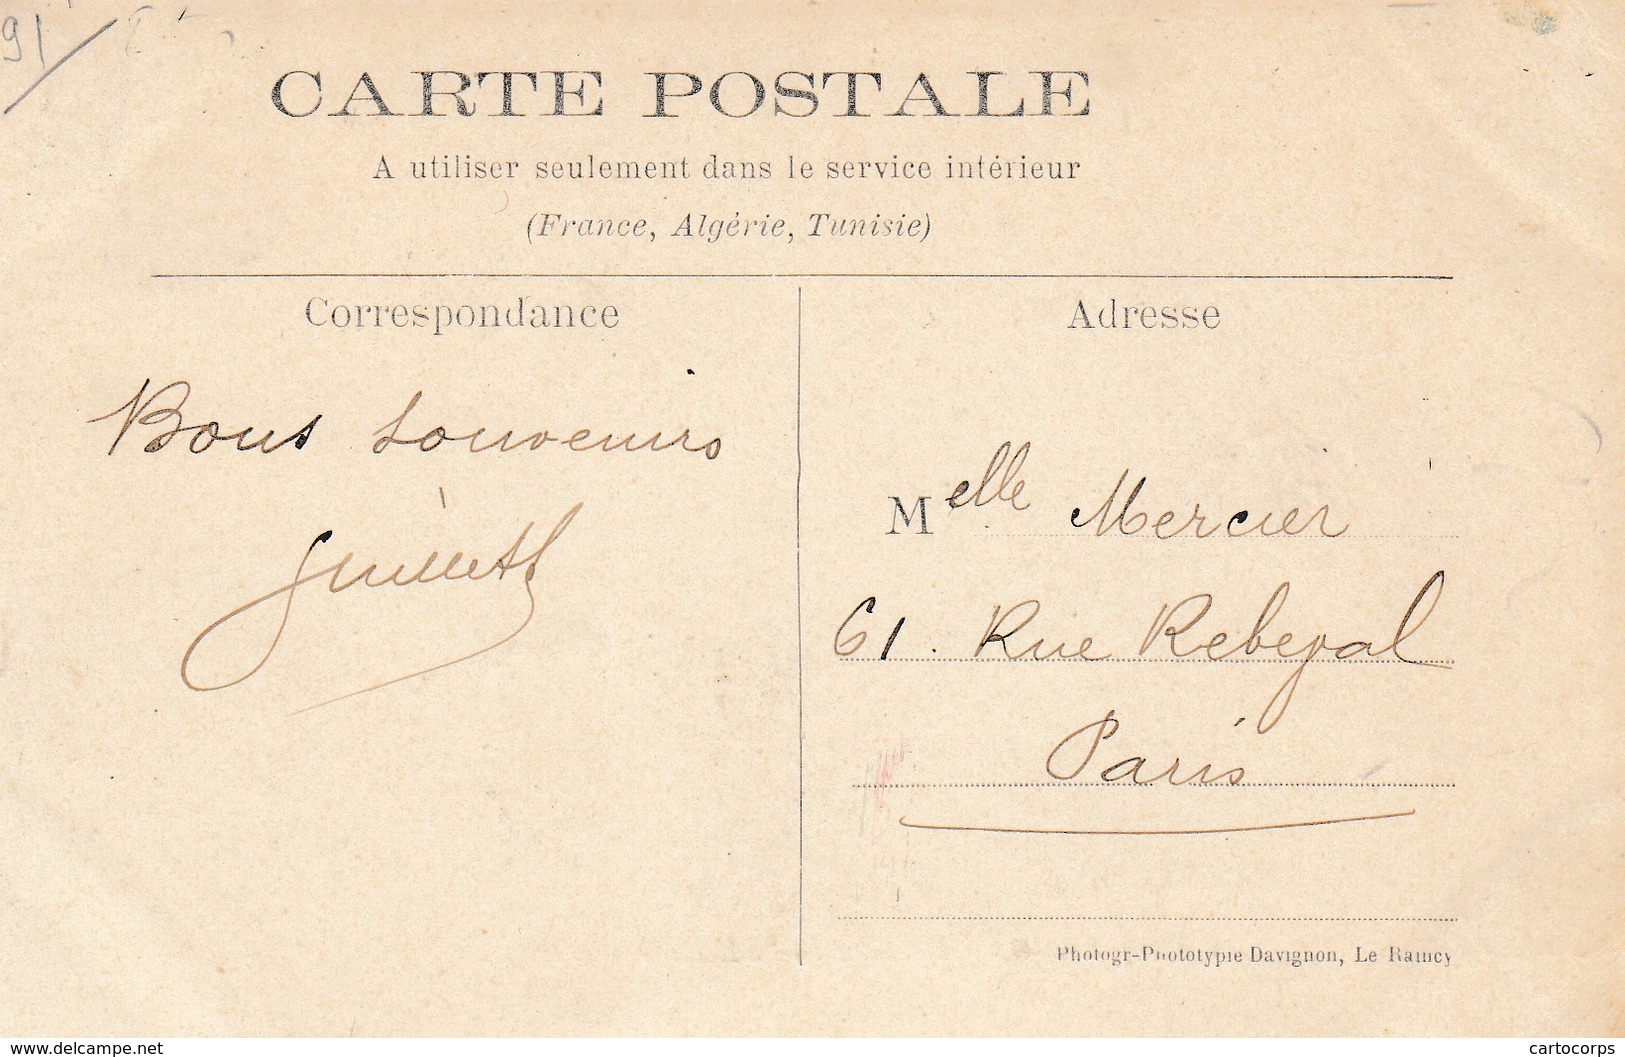 91
CARTE POSTALE
A utiliser seulement dans le service intérieur
(France, Algérie, Tunisie)
Correspondance
Adresse
Bons souvenirs
Melle Mercier
61. Rue Rebeval
Paris
Photogr-Phototypie Davignon, Le Raincy
www.delcampe.net
cartocorps